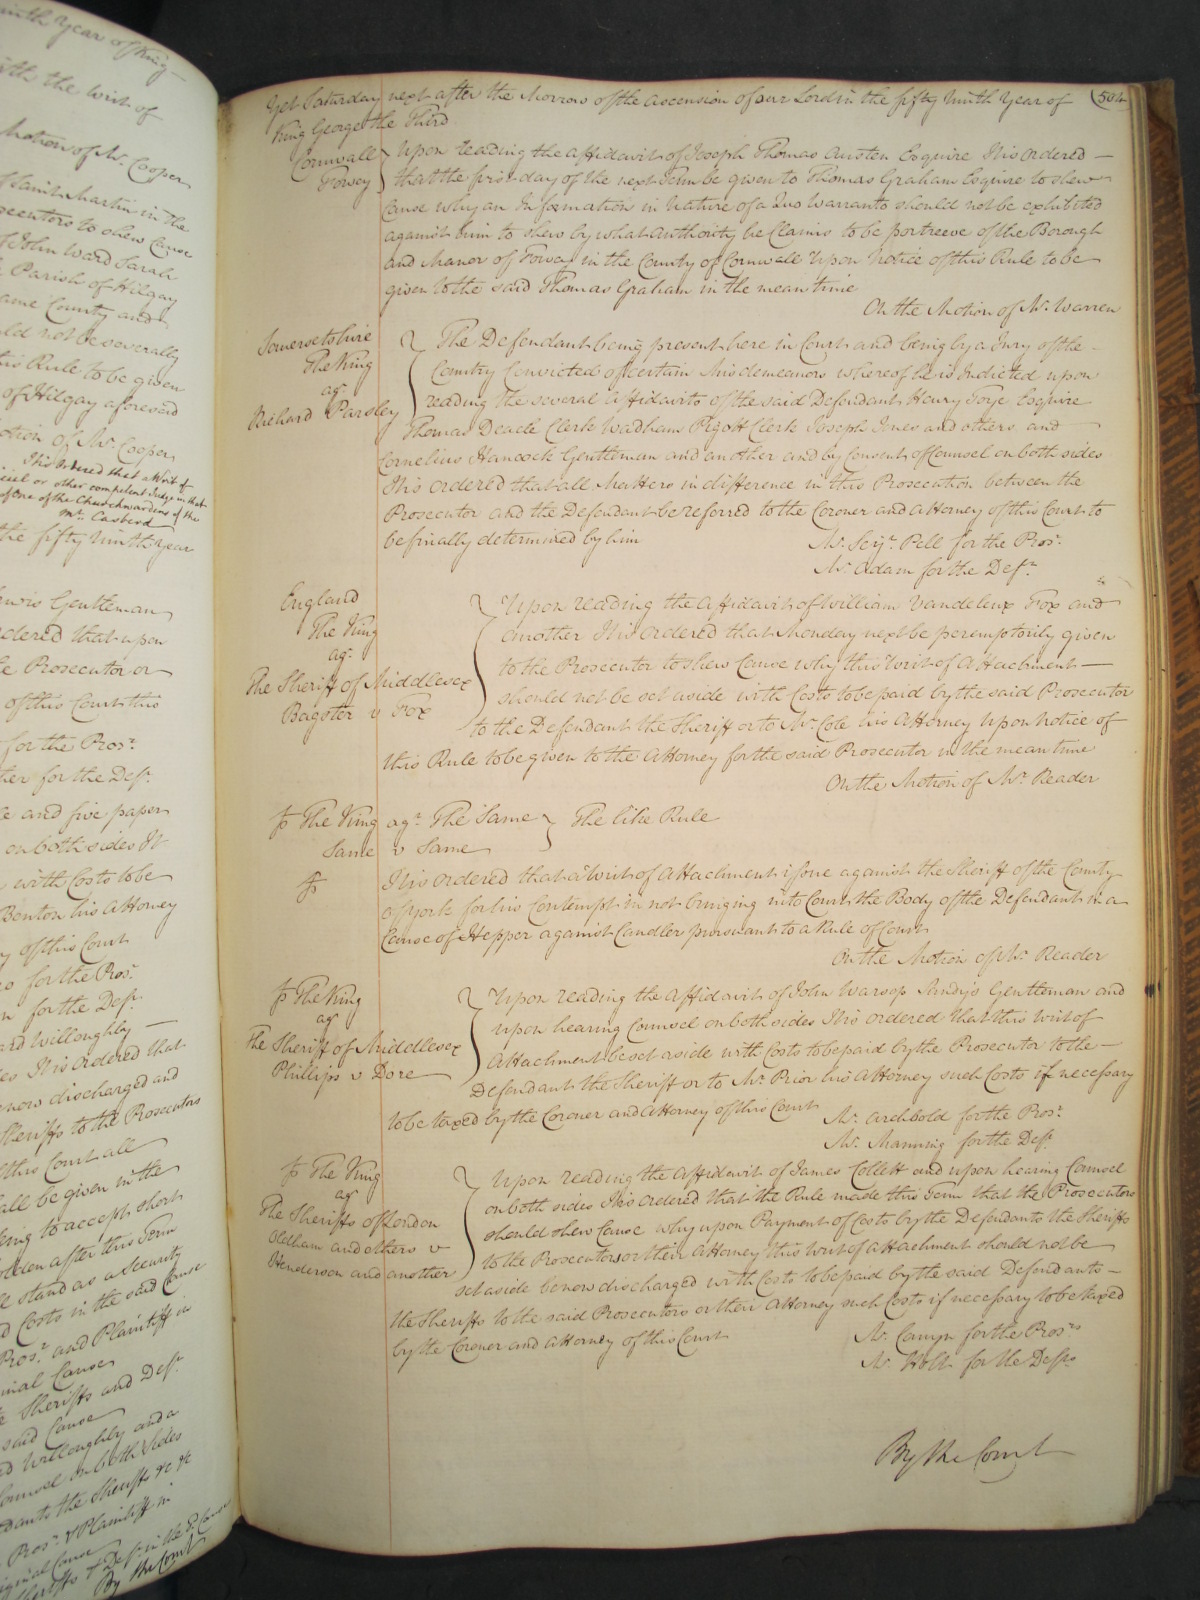 ninth Year of King
with the Writ of
Motion of Mr. Cooper
Saint Martin in the
secutors to shew Cause
John Ward Sarah
Parish of Hilgay
ame County and
uld not be severally
is Rule to be given
of Hilgay aforesaid
otion of Mr. Cooper
It is Ordered that a Writ of
or other competent Judge in that
of one of the Churchwardens of the
Mr. Casberd
the fifty Ninth Year
ewis Gentleman
rdered that upon
e Prosecutor or
of this Court this
for the Pros.r
her for the Def.t
e and five paper
on both sides It
with Costs to be
Benton his Attorney
y of this Court
for the Pros.r
n for the Def.t
ard Willoughby
es It is Ordered that
now discharged and
Sheriffs to the Prosecutors
this Court all
all be given in the
ing to accept short
olden after this Term
e stand as a Security
d Costs in the said Cause
Pros.r and Plaintiff in
inal Cause
e Sheriffs and Def.t
said Cause
d Willoughby and a
Counsel on both Sides
dants the Sheriffs &c &c
Pros.r & Plaintiff in
iginal Cause
Sheriffs & Def.t in the Cause
By the Court
504
Yet Saturday next after the Morrow of the Ascension of our Lord in the fifty Ninth Year of
King George the Third
Cornwall Upon reading the Affidavit of Joseph Thomas Austen Esquire It is Ordered
Fowey that the first day of the next Term be given to Thomas Graham Esquire to shew
Cause why an Information in Nature of a Quo Warranto should not be exhibited
against him to shew by what Authority he Claims to be portreeve of the Borough
and Manor of Fowey in the County of Cornwall Upon Notice of this Rule to be
given to the said Thomas Graham in the mean time
On the Motion of Mr. Warren
Somersetshire The Defendant being present here in Court and being by a Jury of the
The King Country Convicted of certain Misdemeanors whereof he is Indicted upon
ag.t reading the several Affidavits of the said Defendant Henry Foye Esquire
Richard Parsley Thomas Deacle Clerk Wadham Pigott Clerk Joseph Ines and others and
Cornelius Hancock Gentleman and another and by Consent of Counsel on both sides
It is Ordered that all Matters in difference in this Prosecution between the
Prosecutor and the Defendant be referred to the Coroner and Attorney of this Court to
be finally determined by him
Mr. Serj.t Pell for the Pros.r
Mr. Adam for the Def.t
England Upon reading the Affidavit of William Vandeleur Fox and
The King another It is Ordered that Monday next be peremptorily given
ag.t to the Prosecutor to shew Cause why this Writ of Attachment
The Sheriff of Middlesex should not be set aside with Costs to be paid by the said Prosecutor
Bagster v Fox to the Defendant the Sheriff or to Mr. Cole his Attorney Upon Notice of
this Rule to be given to the Attorney for the said Prosecutor in the mean time
On the Motion of Mr. Reader
The King ag.t The Same The like Rule
Same v Same
It is Ordered that a Writ of Attachment issue against the Sheriff of the County
of York for his Contempt in not bringing into Court the Body of the Defendant in a
Cause of Hepper against Candler pursuant to a Rule of Court
On the Motion of Mr. Reader
The King Upon reading the Affidavit of John Warsop Sandys Gentleman and
ag.t upon hearing Counsel on both sides It is Ordered that this Writ of
The Sheriff of Middlesex Attachment be set aside with Costs to be paid by the Prosecutor to the
Phillips v Dore Defendant the Sheriff or to Mr. Prior his Attorney such Costs if necessary
to be taxed by the Coroner and Attorney of this Court
Mr. Archbold for the Pros.r
Mr. Manning for the Def.t
The King Upon reading the Affidavit of James Collett and upon hearing Counsel
ag.t on both sides It is Ordered that the Rule made this Term that the Prosecutors
The Sheriffs of London should shew Cause why upon Payment of Costs by the Defendants the Sheriffs
Oldham and others v to the Prosecutors or their Attorney this Writ of Attachment should not be
Henderson and another set aside be now discharged with Costs to be paid by the said Defendants
the Sheriffs to the said Prosecutors or their Attorney such Costs if necessary to be taxed
by the Coroner and Attorney of this Court
Mr. Comyn for the Pros.rs
Mr. Holt for the Def.ts
By the Court